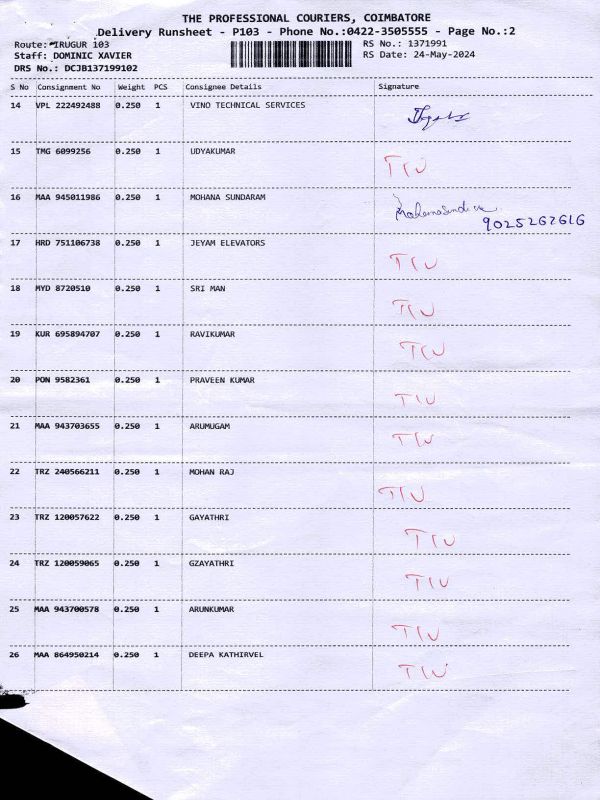 THE PROFESSIONAL COURIERS, COIMBATORE
Delivery Runsheet - P103 - Phone No.:0422-3505555 - Page No.:2
Route: IRUGUR 103 RS No.: 1371991
Staff: DOMINIC XAVIER RS Date: 24-May-2024
DRS No.: DCJB137199102
S No Consignment No Weight PCS Consignee Details Signature
14 VPL 222492488 0.250 1 VINO TECHNICAL SERVICES
15 TMG 6099256 0.250 1 UDYAKUMAR
16 MAA 945011986 0.250 1 MOHANA SUNDARAM
9025262616
17 HRD 751106738 0.250 1 JEYAM ELEVATORS
18 MYD 8720510 0.250 1 SRI MAN
19 KUR 695894707 0.250 1 RAVIKUMAR
20 PON 9582361 0.250 1 PRAVEEN KUMAR
21 MAA 943703655 0.250 1 ARUMUGAM
22 TRZ 240566211 0.250 1 MOHAN RAJ
23 TRZ 120057622 0.250 1 GAYATHRI
24 TRZ 120059065 0.250 1 GZAYATHRI
25 MAA 943700578 0.250 1 ARUNKUMAR
26 MAA 864950214 0.250 1 DEEPA KATHIRVEL